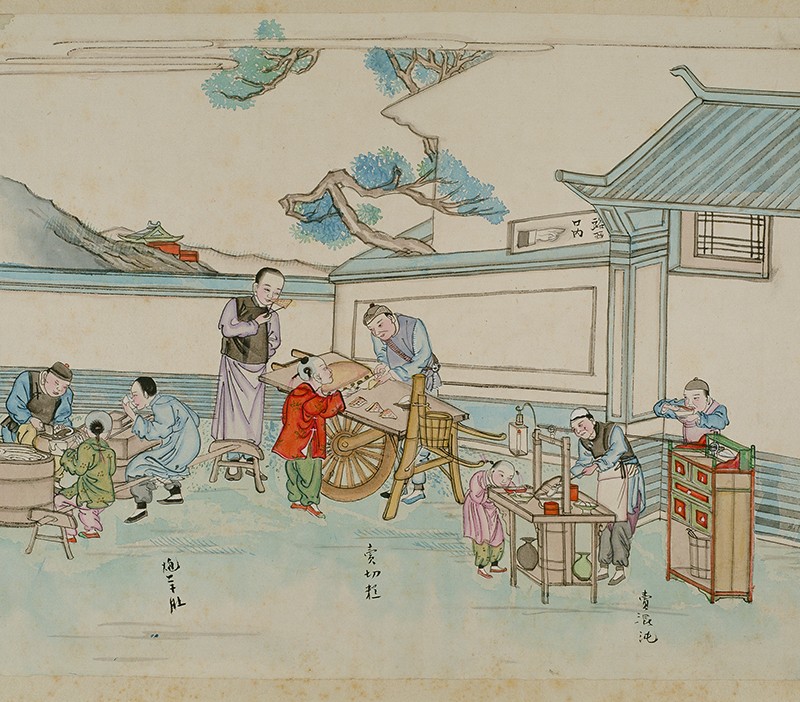 路西
口内
賣混沌
賣切糕
炮羊肚